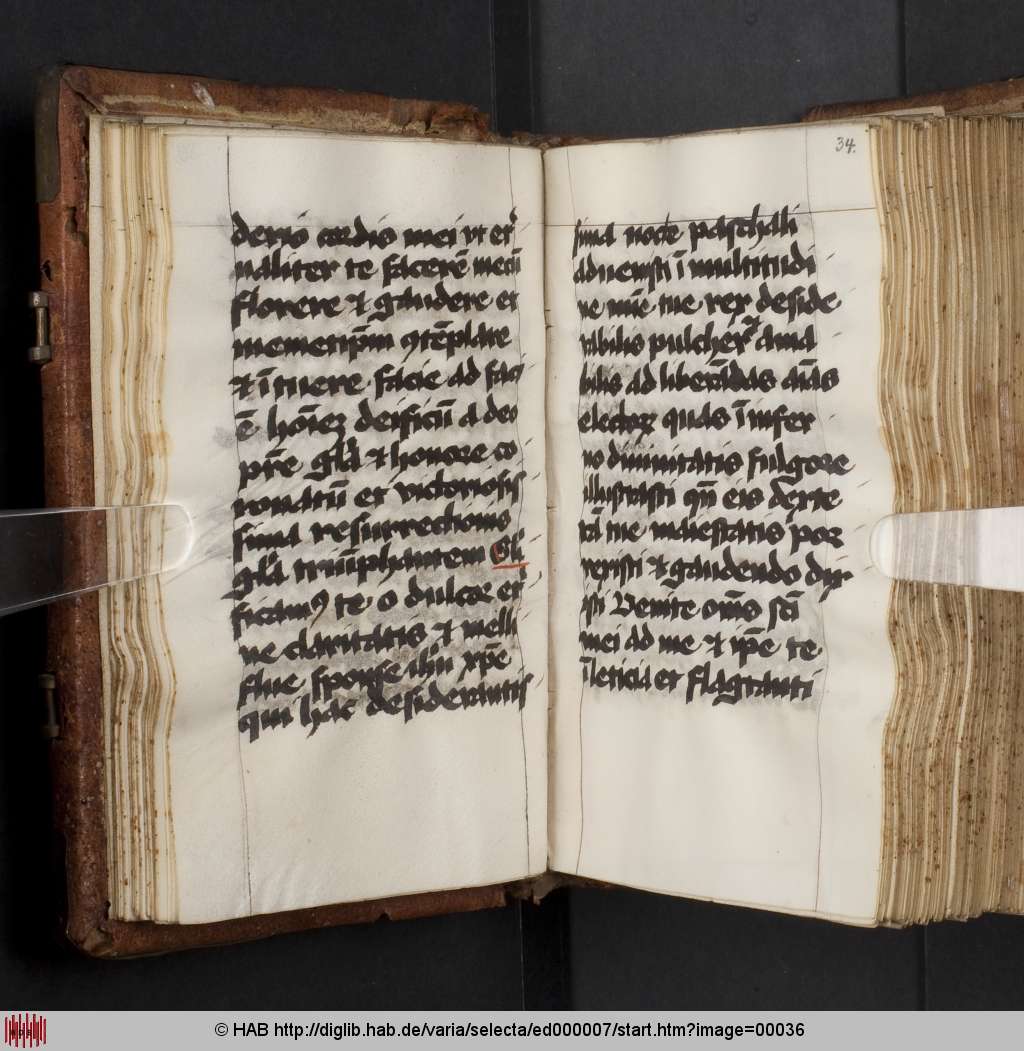 derio cordis mei vt eter
naliter te facerē mecū
florere et gaudere et
memetip̄m ꝯtēplare
et ī tuere facie ad faci
ē hoīeꝫ deificū a deo
pr̄e gl̄a et honore co
ronatū et victoriosis
sima resurrectionis
gl̄a triūphantem Glī
ficamꝰ te o dulcor et
ne claritatis et melli
flue sponse ihū xp̄e
qui hac desiderantis
34.
sima nocte paschali
aduenisti ī multitudi
ne mīe tue rex deside
rabilis pulcher et ama
bilis ad liberādas aīas
electoꝝ quas ī infer
no diuinitatis fulgore
illustrasti qn̄ eis dexte
rā tue maiestatis por
rexisti et gaudendo dix
isti Venite om̄s sc̄i
mei ad me et ip̄e te
ī leticia et flagranti
© HAB http://diglib.hab.de/varia/selecta/ed000007/start.htm?image=00036